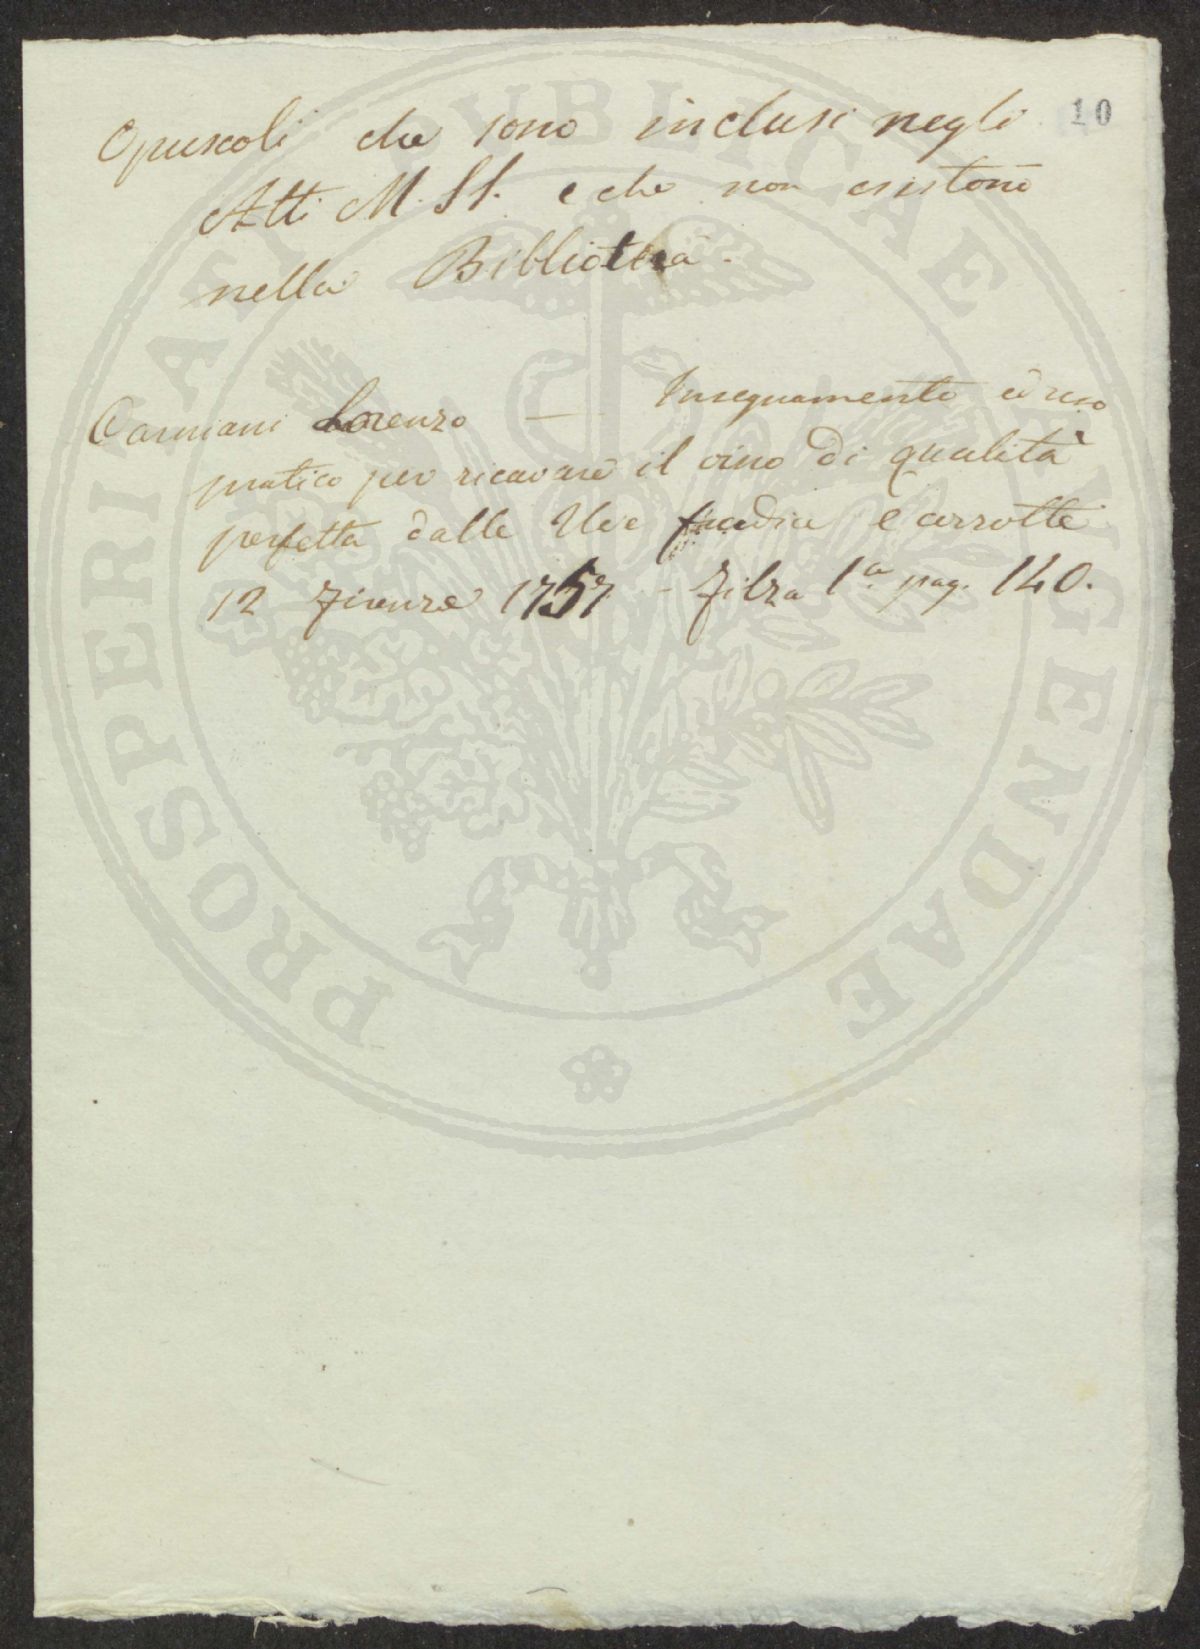 10
Opuscoli che sono inclusi negli
Atti M. SS. e che non esistono
nella Biblioteca.
Carmiani Lorenzo — Insegnamento ed uso
pratico per ricavare il vino di qualità
perfetta dalle Uve fradice e corrotte
12 Firenze 1757 - Filza 1a pag. 140.
PROSPERITATI PVBLICAE AVGENDAE